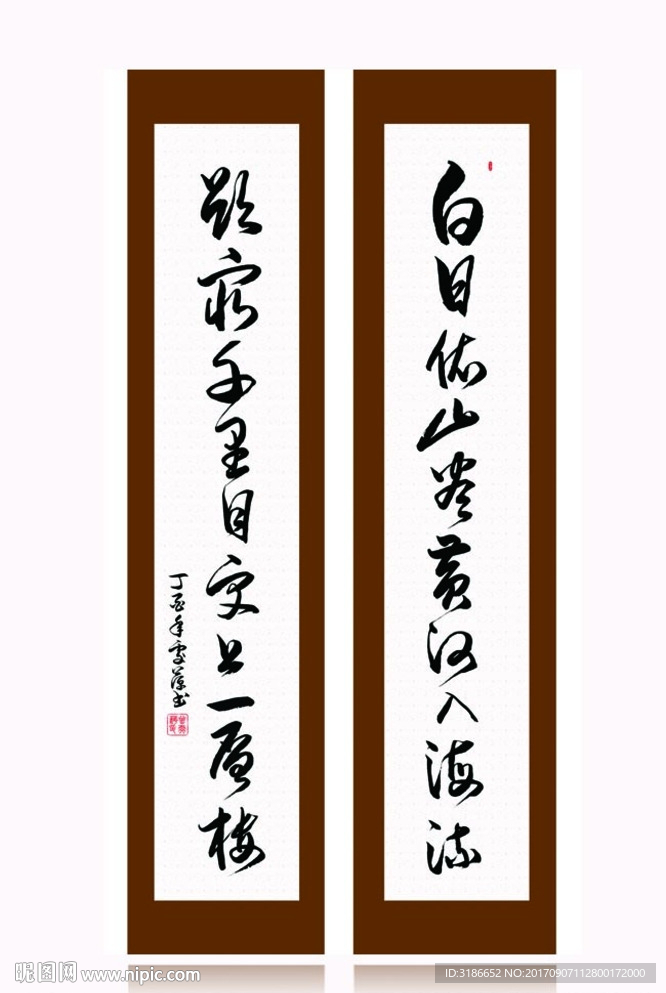 白日依山尽黄河入海流
欲穷千里目更上一层楼
丁酉年
昵图网 www.nipic.com
ID:3186652 NO:20170907112800172000